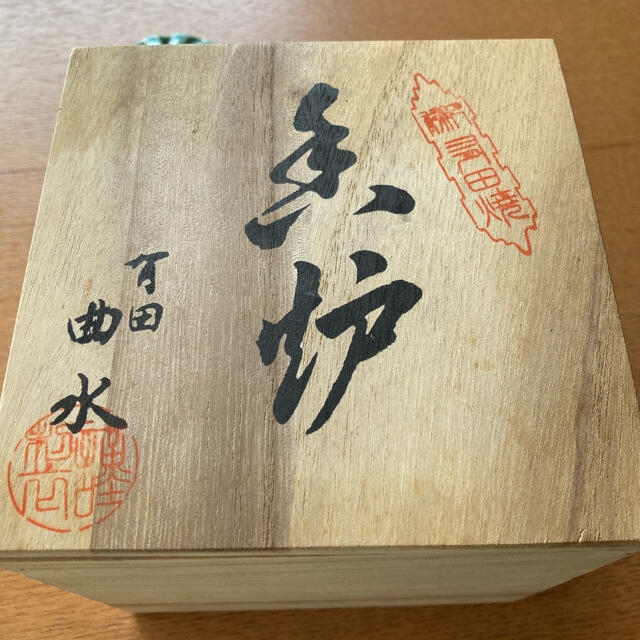 香炉
有田
曲水
有田焼